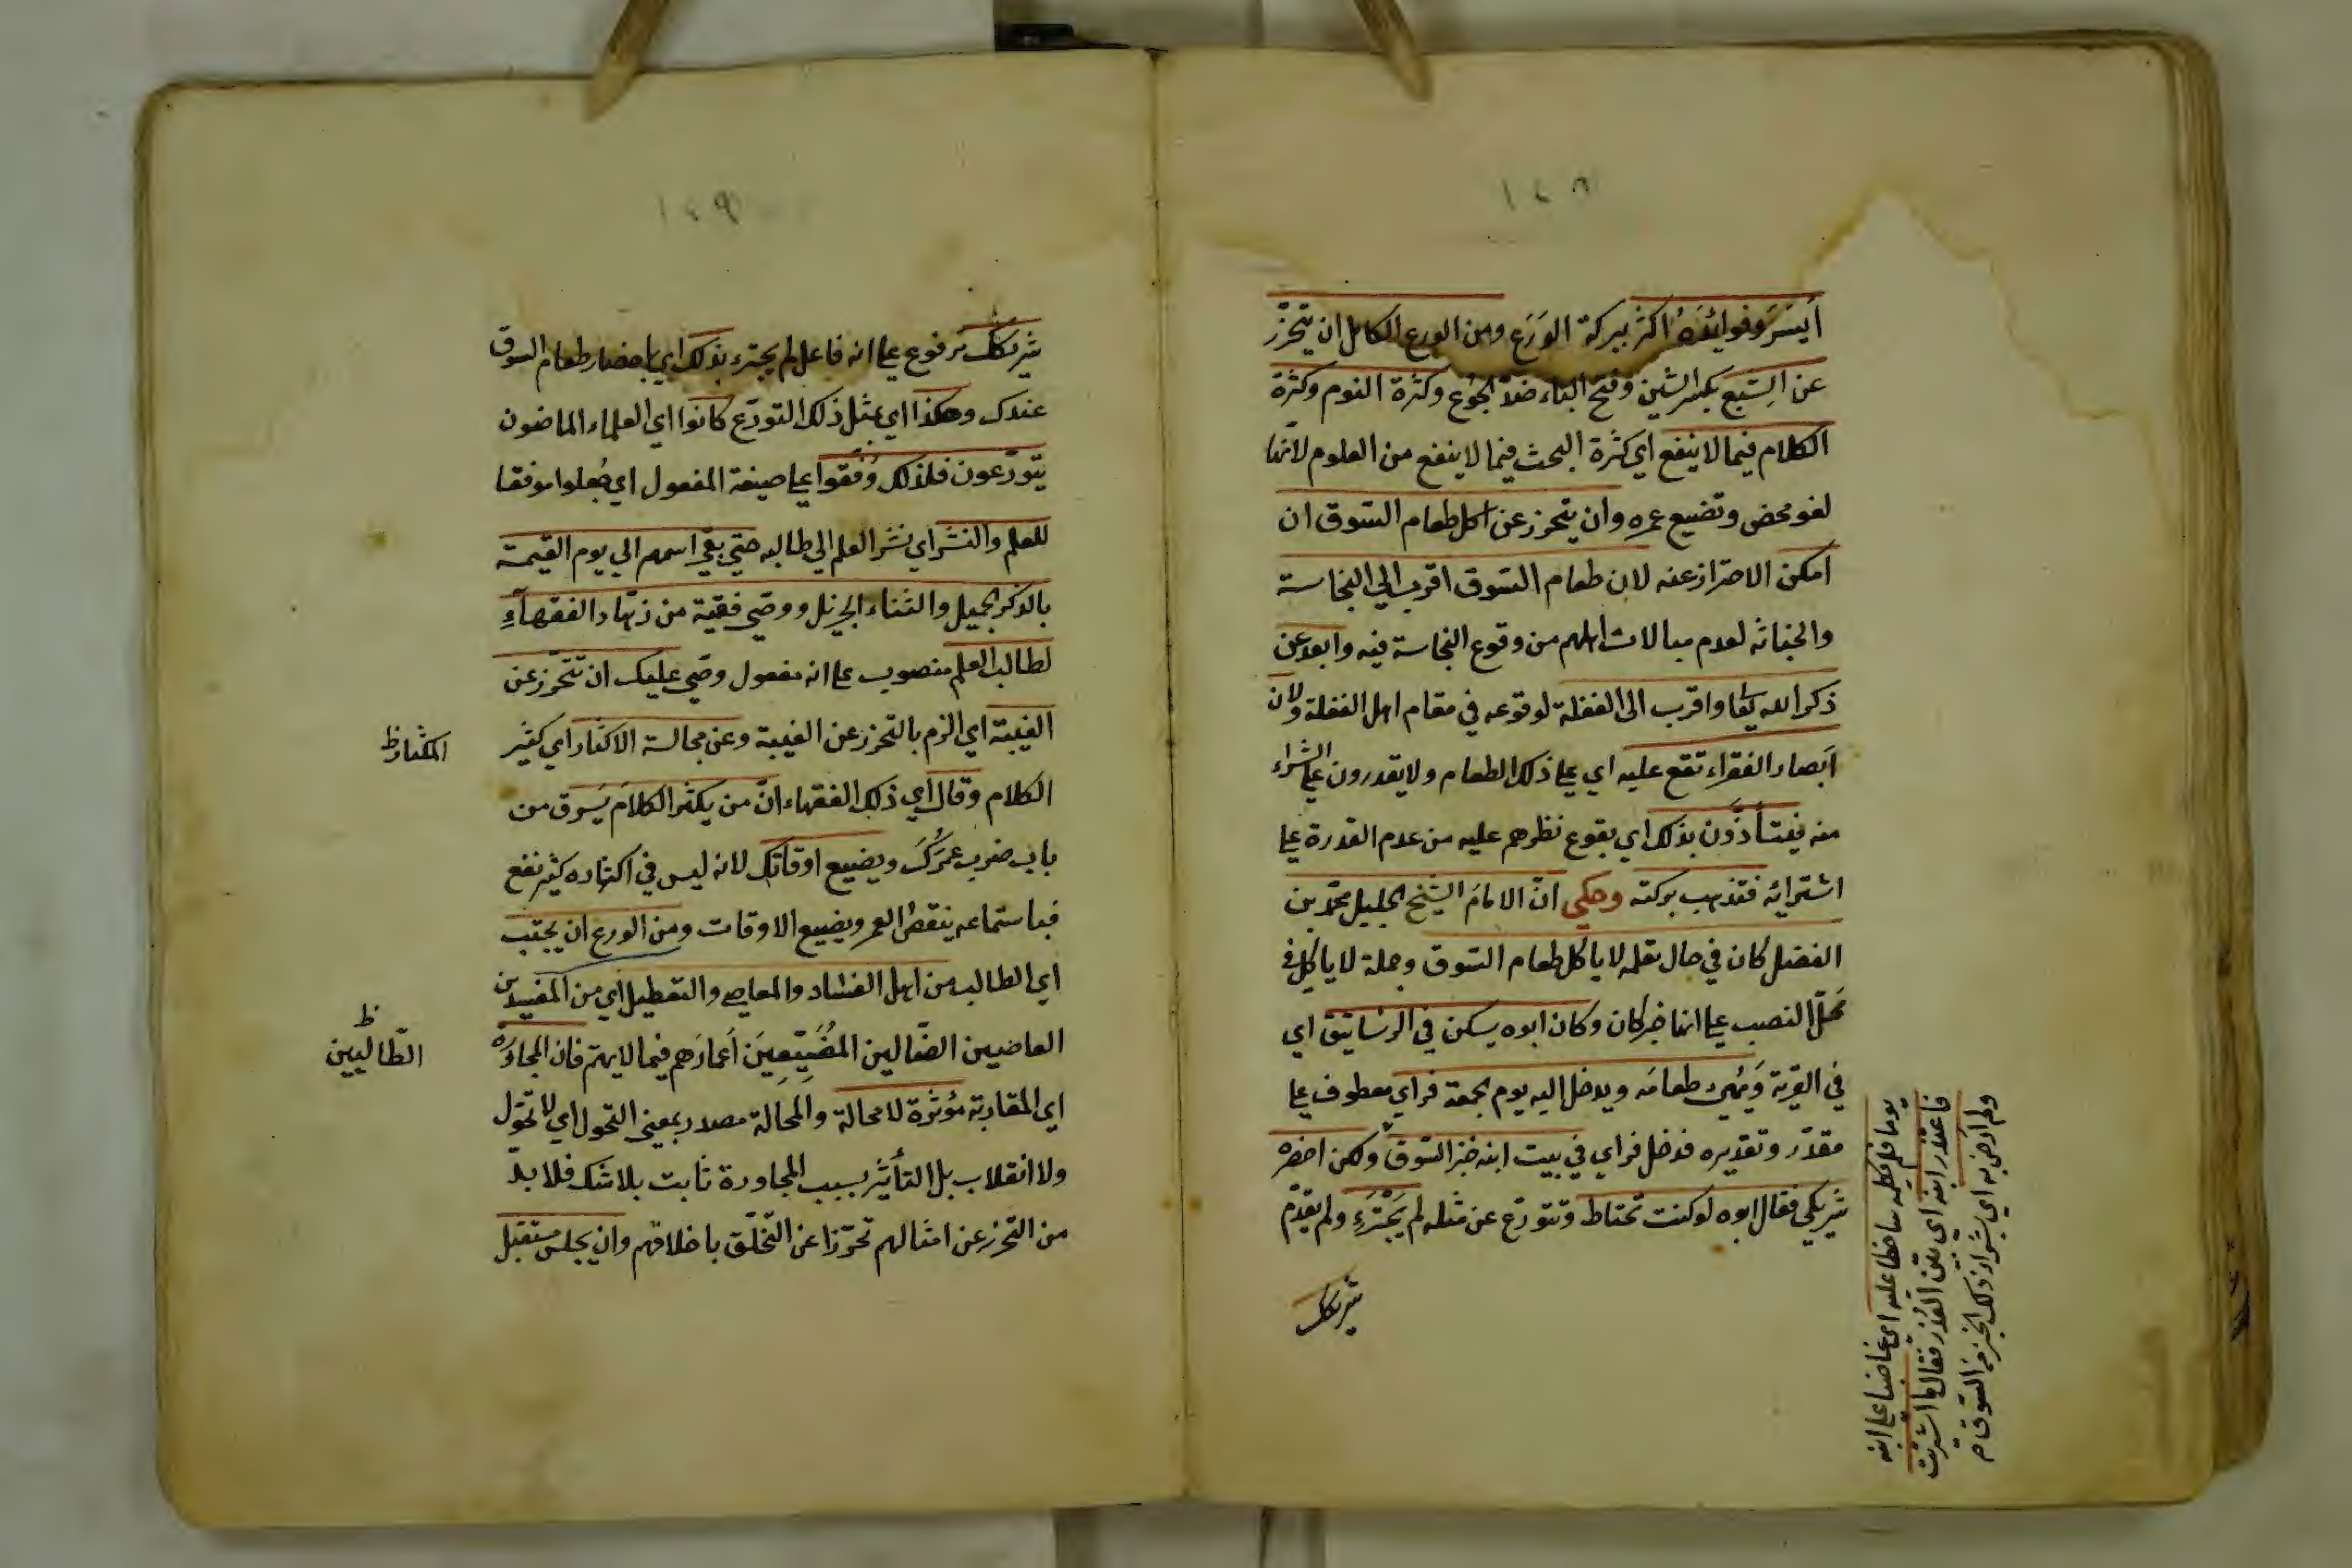 ١٤٨
أيسر وفوائده اكثر ببركة الورع ومن الورع الكامل ان يتحرّز
عن الشبع بكسر الشين وفتح الباء ضدّ الجوع وكثرة النوم وكثرة
الكلام فيما لا ينفع اي كثرة البحث فيما لا ينفع من العلوم لانّها
لغو محض وتضيع عمره وان يتحرز عن اكل طعام السّوق ان
امكن الاحتراز عنه لان طعام السّوق اقرب الي النجاسة
والخباثة لعدم مبالات اهلهم من وقوع النجاسة فيه وابعد عن
ذكر الله تعا واقرب الى الغفلة لوقوعه في مقام اهل الغفلة ولان
ابصار الفقراء تقع عليه اي علي ذلك الطعام ولا يقدرون علي الشراء
منه فيتأذّون بذلك اي بوقوع نظرهم عليه من عدم القدرة علي
اشترائه فتذهب بركته وحكي انّ الامام الشّيخ الجليل محمّد بن
الفضل كان في حال تعلمه لا ياكل طعام السّوق وجملة لا ياكل في
محلّ النصب علي انها خبر كان وكان ابوه يسكن في الرساتيق اي
في القرية ويهيء طعامه ويدخل اليه يوم الجمعة فراي معطوف علي
مقدّر وتقديره فدخل فراي في بيت ابنه خبز السّوق ولكن احضره
شريكي فقال ابوه لو كنت تحتاط وتتورّع عن مثله لم يجترء ولم يقدّم
شريكك
يوما فلم يكلمه ساخطا عليه اي غاضبا علي ابنه
فاعتذر ابنه اي بيّن العذر فقال ما اشتريت
ولم ارض به اي بشراء ذلك الخبز من السّوق م
١٤٩
شريكك مرفوع علي انه فاعل لم يجترء بذلك اي باحضار طعام السوق
عندك وهكذا اي بمثل ذلك التورّع كانوا اي العلماء الماضون
يتورّعون فلذلك وُفّقوا علي صيغة المفعول اي جُعلوا موفقا
للعلم والنشر اي نشر العلم الي طالبه حتي بقي اسمهم الي يوم القيمة
بالذكر الجميل والثناء الجزيل ووصّي فقيه من زهّاد الفقهاءِ
لطالب العلم منصوب علي انه مفعول وصّي عليك ان تتحّرز عن
الغيبة اي الزم بالتحرز عن الغيبة وعن مجالسة الاكثار اي كثير
المكثار ظ
الكلام وقال اي ذلك الفقهاء انّ من يكثر الكلام يسرق من
باب ضرب عمرك ويضيع اوقاتك لانه ليس في اكثاره كثير نفع
فباستماعه ينقص العمر ويضييع الاوقات ومن الورع ان يجتنب
اي الطالب من اهل الفساد والمعاصي والتعطيل اي من المفسدين
العاصيين الضّالين المُضيّعين أعمارَهم فيما لا يهمّ فان المجاورة
ظ
الطّالبين
اي المقاربة مؤثرة لا محالة والمحالة مصدر بمعني التحول اي لا تحوّل
ولا انقلاب بل التأثير بسبب المجاورة ثابت بلا شك فلا بدّ
من التحرز عن امثالهم تحرّزا عن التّخلّق باخلاقهم وان يجلس مستقبل